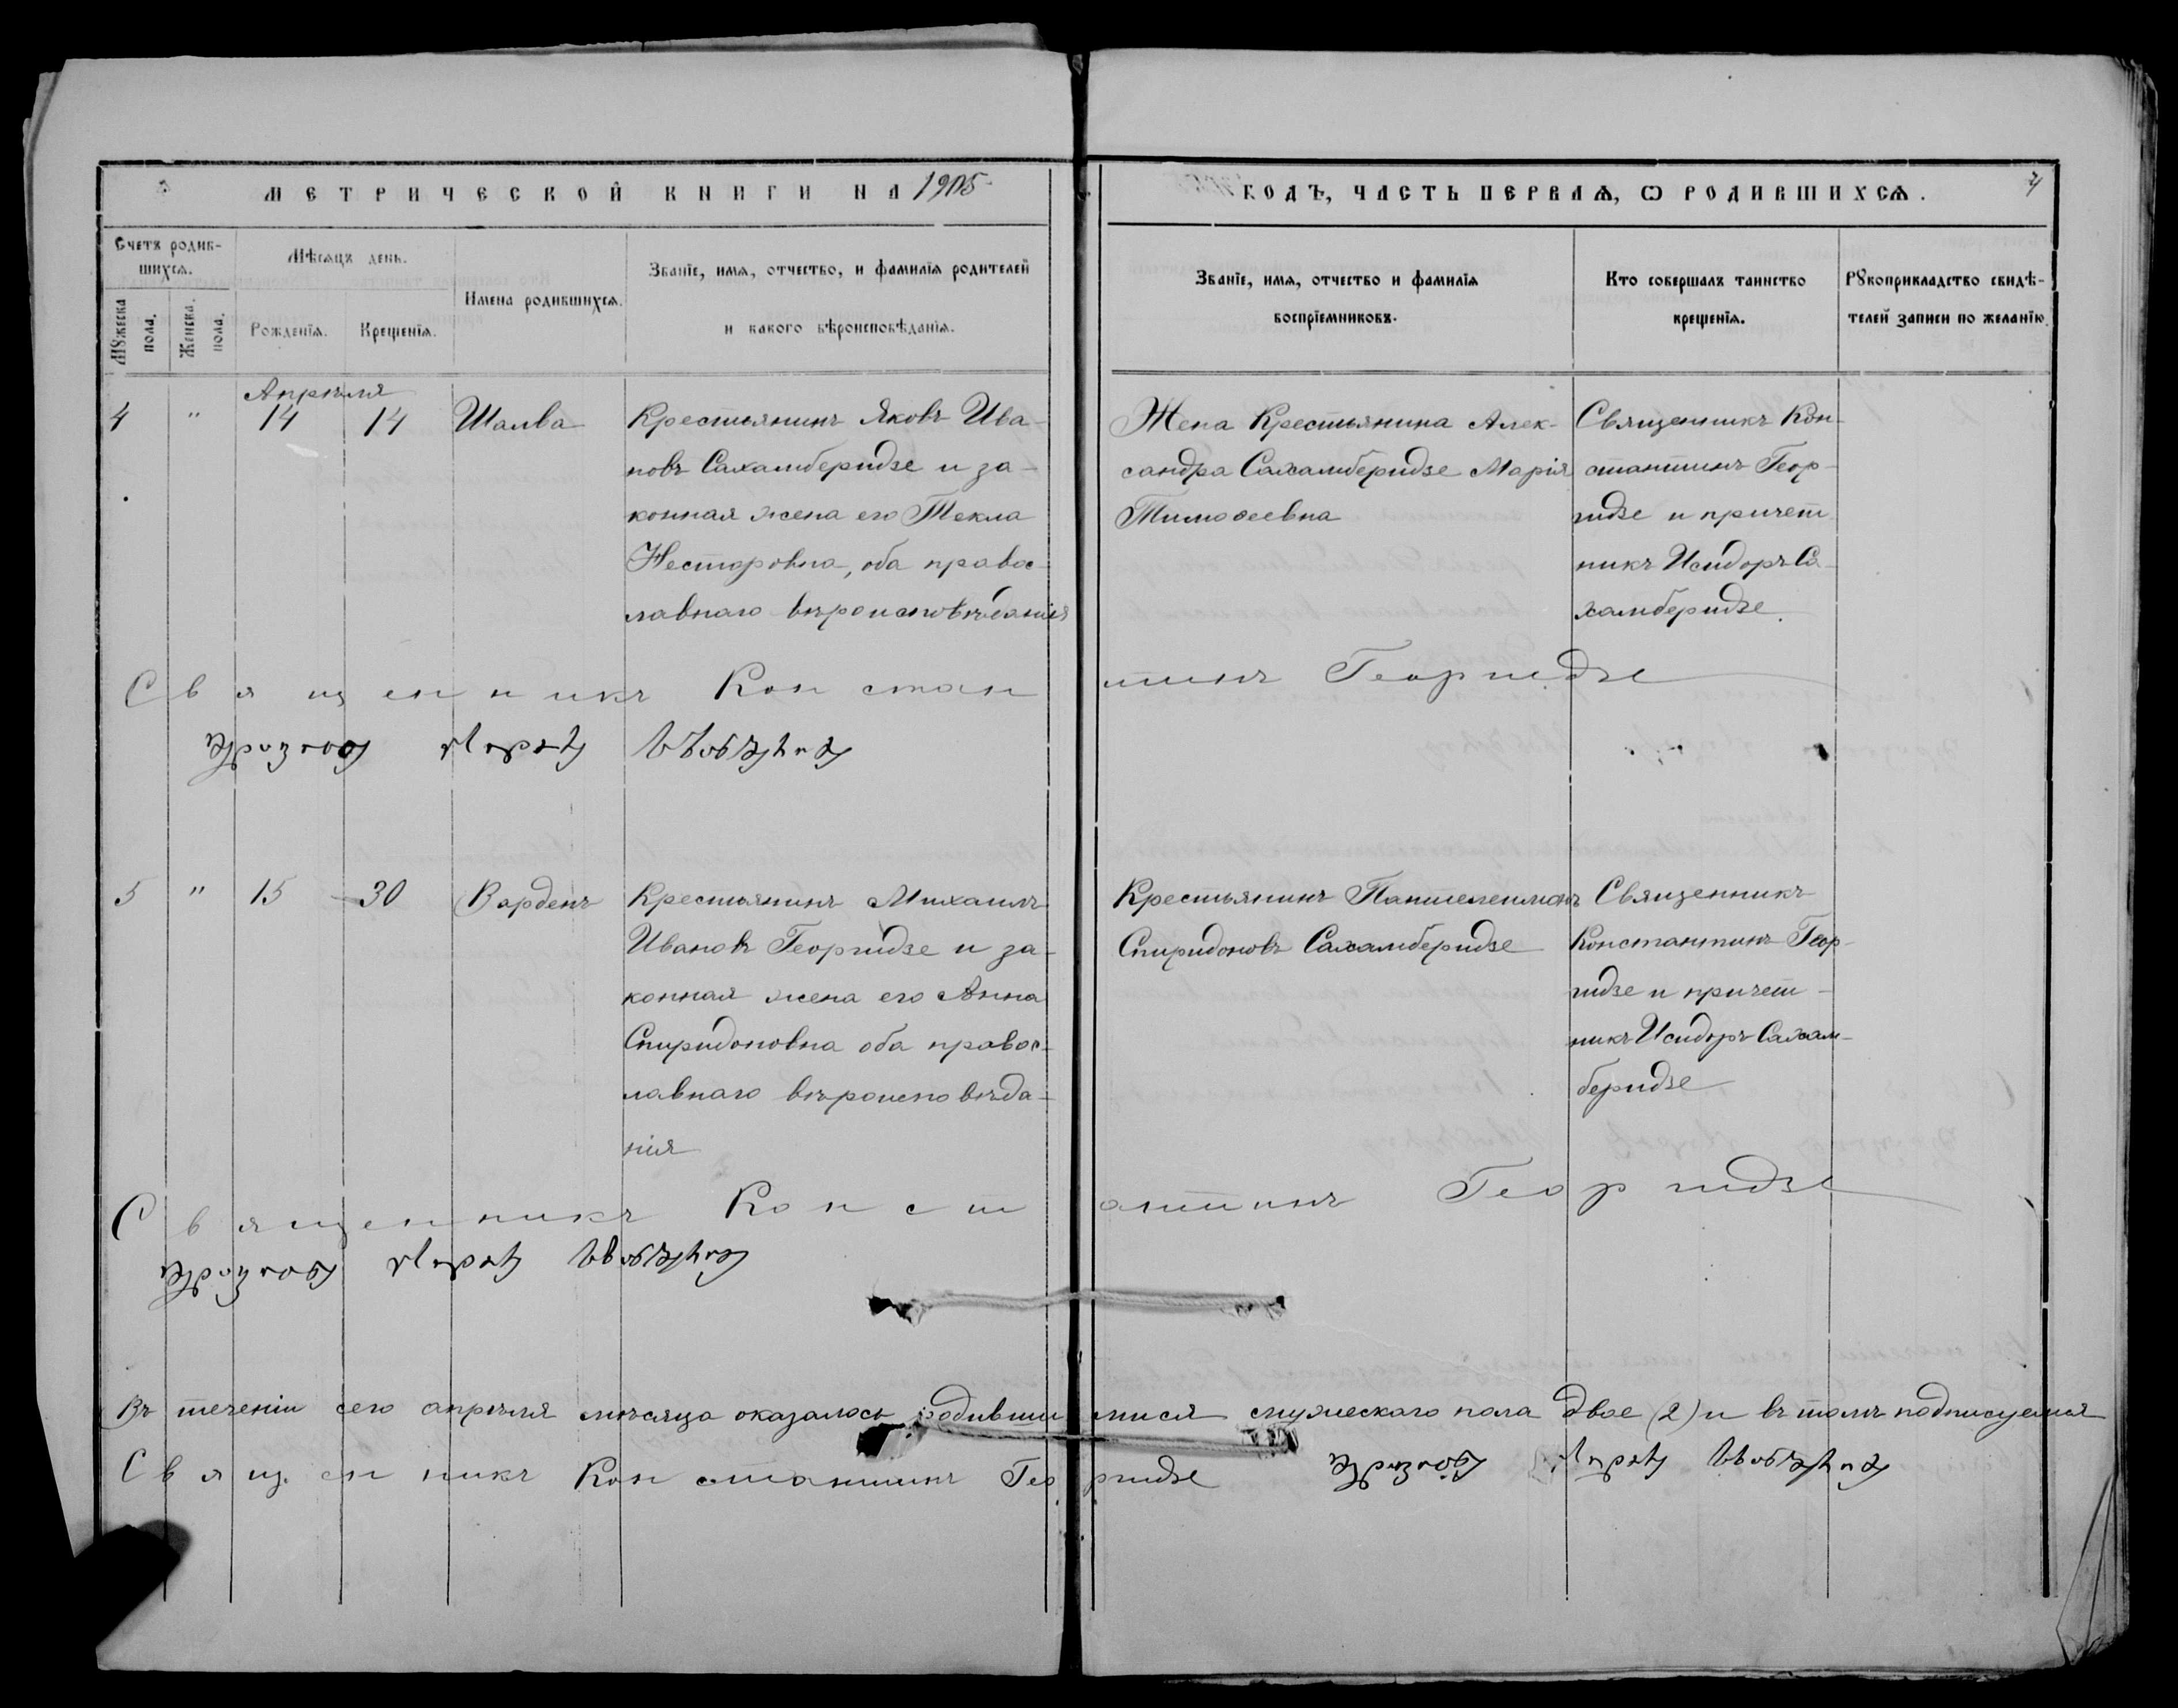 МЕТРИЧЕСКОЙ КНИГИ НА 1905
ГОДЪ, ЧАСТЬ ПЕРВАЯ, Ѡ РОДИВШИХСѦ.
Счетъ родив-
шихсѧ.
Мѣсѧцъ день.
Мꙋжеска
пола.
Женска
пола.
Рожденїѧ.
Крещенїѧ.
Имена родившихсѧ.
Званїе, имѧ, отчество, и фамилїѧ родителей
и какого вѣроисповѣданїѧ.
Званїе, имѧ, отчество и фамилїѧ
воспрїемниковъ.
Кто совершалъ таинство
крещенїѧ.
Рꙋкоприкладство свидѣ-
телей записи по желанїю.
Апрѣля
4 " 14 14 Шалва
Крестьянинъ Яковъ Ива-
новъ Сахамберидзе и за-
конная жена его Текла
Несторовна, оба правос-
лавнаго вѣроисповѣданія
Жена Крестьянина Алек-
сандра Сахамберидзе Марія
Тимоѳеевна
Священникъ Кон-
стантинъ Геор-
гидзе и причет
никъ Исидоръ Са-
хамберидзе.
Священникъ Константинъ Георгидзе
5 " 15 30 Варденъ
Крестьянинъ Михаилъ
Ивановъ Георгидзе и за-
конная жена его Анна
Спиридоновна оба правос-
лавнаго вѣроисповѣда-
нія
Крестьянинъ Пантелеимонъ
Спиридоновъ Сахамберидзе
Священникъ
Константинъ Геор-
гидзе и причет-
никъ Исидоръ Сахам-
беридзе
Священникъ Константинъ Георгидзе
Въ теченіи сего апрѣля мѣсяца оказалось родившимися мужескаго пола двое (2) и въ томъ подписуемся
Священникъ Константинъ Георгидзе